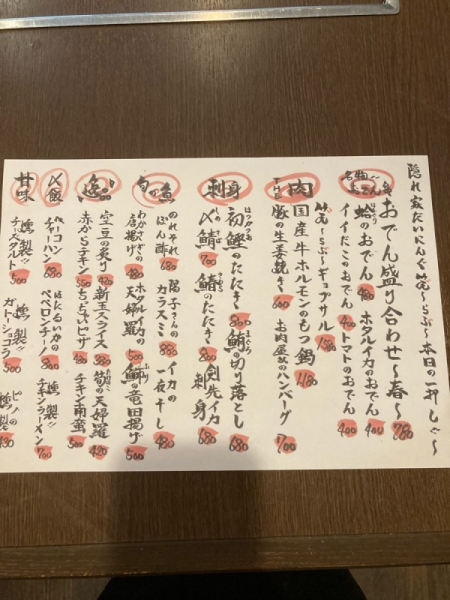 隠れ家だいにんぐ笑〜らぶ〜本日の一押し〜
名物おでん
おでん盛り合わせ〜春〜 780
蛤のおでん ホタルイカのおでん 400
イイだこのおでん 400 トマトのおでん 400
肉
笑〜らぶ〜ギョプサル
国産牛ホルモンのもつ鍋
豚の生姜焼き 600 お肉屋のハンバーグ 700
刺身
初鰹のたたき 800 鮪の切り落とし 680
〆鯖 700 鯵のたたき 800 剣先イカ刺身 680
旬の魚
のれそれぽん酢 680 陽子さんのカラスミ 800 イカの一夜干し 480
わかさぎの唐揚げ ホタルイカの天婦羅 500 鰤の竜田揚げ 500
逸品
空豆の炙り 420 新玉スライス 筍の天婦羅 420
赤からチキン ちぢみピザ チキン南蛮 500
〆飯
ベーコンチャーハン ほたるいかのペペロンチーノ 燻製チキンラーメン 700
甘味
燻製チーズタルト 500 ガトーショコラ 500 ピノの燻製